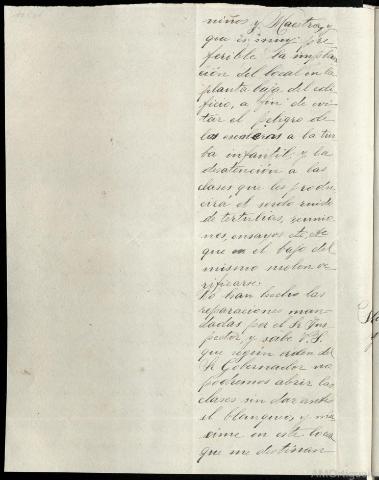 niños y Maestra, y
que es muy pre
ferible la insta
ción del local en la
planta baja del edi
ficio, a fin de evi
tar el peligro de
las escaleras a la tur
ba infantil; y la
desatención a las
clases que les produ
cirá el sordo ruido
de tertulias, reunio
nes, ensayos etc. etc
que en el bajo del
mismo suelen ve
rificarse.
No han hecho las
reparaciones man
dadas por el Sr. Ins
pector y sabe V.S.
que según orden del
Sr Gobernador no
podremos abrir las
clases sin dar antes
el blanqueo, y má
xime en este local
que me destinan